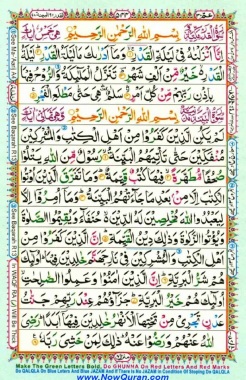 بِسْمِ اللّٰهِ الرَّحْمٰنِ الرَّحِيْمِ
اِنَّاۤ اَنْزَلْنٰهُ فِيْ لَيْلَةِ الْقَدْرِ وَمَاۤ اَدْرٰىكَ مَا لَيْلَةُ الْقَدْرِ لَيْلَةُ
الْقَدْرِ خَيْرٌ مِّنْ اَلْفِ شَهْرٍ تَنَزَّلُ الْمَلٰٓئِكَةُ وَالرُّوْحُ فِيْهَا
بِاِذْنِ رَبِّهِمْ مِّنْ كُلِّ اَمْرٍ سَلٰمٌ هِيَ حَتّٰى مَطْلَعِ الْفَجْرِ
بِسْمِ اللّٰهِ الرَّحْمٰنِ الرَّحِيْمِ
لَمْ يَكُنِ الَّذِيْنَ كَفَرُوْا مِنْ اَهْلِ الْكِتٰبِ وَالْمُشْرِكِيْنَ
مُنْفَكِّيْنَ حَتّٰى تَاْتِيَهُمُ الْبَيِّنَةُ رَسُوْلٌ مِّنَ اللّٰهِ يَتْلُوْا
صُحُفًا مُّطَهَّرَةً فِيْهَا كُتُبٌ قَيِّمَةٌ وَمَا تَفَرَّقَ الَّذِيْنَ اُوْتُوا
الْكِتٰبَ اِلَّا مِنْۢ بَعْدِ مَا جَآءَتْهُمُ الْبَيِّنَةُ وَمَاۤ اُمِرُوْۤا اِلَّا
لِيَعْبُدُوا اللّٰهَ مُخْلِصِيْنَ لَهُ الدِّيْنَ حُنَفَآءَ وَيُقِيْمُوا الصَّلٰوةَ
وَيُؤْتُوا الزَّكٰوةَ وَذٰلِكَ دِيْنُ الْقَيِّمَةِ اِنَّ الَّذِيْنَ كَفَرُوْا
مِنْ اَهْلِ الْكِتٰبِ وَالْمُشْرِكِيْنَ فِيْ نَارِ جَهَنَّمَ خٰلِدِيْنَ فِيْهَا اُولٰٓئِكَ
هُمْ شَرُّ الْبَرِيَّةِ اِنَّ الَّذِيْنَ اٰمَنُوْا وَعَمِلُوا الصّٰلِحٰتِ
اُولٰٓئِكَ هُمْ خَيْرُ الْبَرِيَّةِ جَزَآؤُهُمْ عِنْدَ رَبِّهِمْ جَنّٰتُ
عَدْنٍ تَجْرِيْ مِنْ تَحْتِهَا الْاَنْهٰرُ خٰلِدِيْنَ فِيْهَاۤ اَبَدًا رَضِيَ
اللّٰهُ عَنْهُمْ وَرَضُوْا عَنْهُ ذٰلِكَ لِمَنْ خَشِيَ رَبَّهٗ
Make The Green Letters Bold, Do GHUNNA On Red Letters And Red Marks
www.NowQuran.com